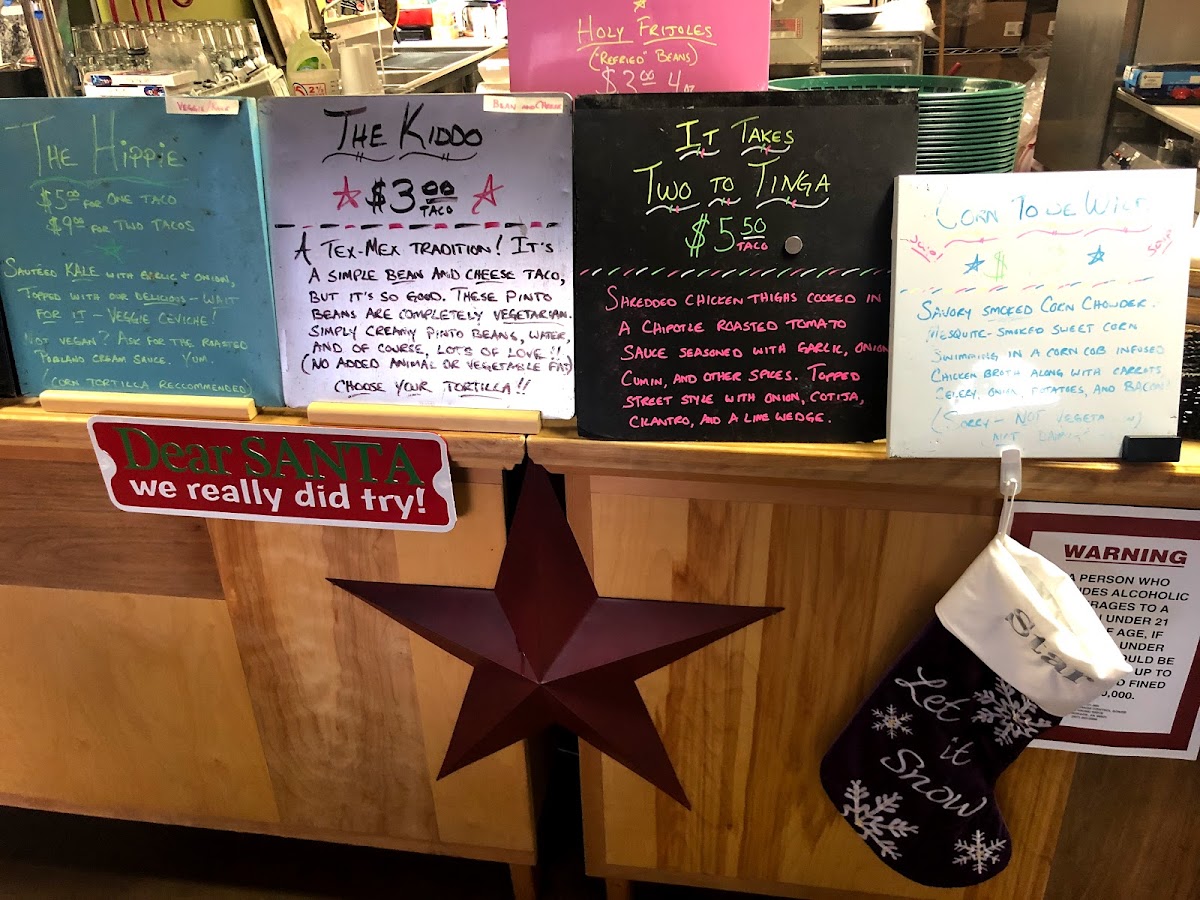 HOLY FRIJOLES
("REFRIED" BEANS)
$3.00 4 oz
VEGGIE/KALE
THE HIPPIE
$5.00 FOR ONE TACO
$9.00 FOR TWO TACOS
SAUTÉED KALE WITH GARLIC & ONION,
TOPPED WITH OUR DELICIOUS - WAIT
FOR IT - VEGGIE CEVICHE!
NOT VEGAN? ASK FOR THE ROASTED
POBLANO CREAM SAUCE. YUM.
(CORN TORTILLA RECCOMMENDED)
BEAN AND CHEESE
THE KIDDO
$3.00
TACO
A TEX-MEX TRADITION! IT'S
A SIMPLE BEAN AND CHEESE TACO,
BUT IT'S SO GOOD. THESE PINTO
BEANS ARE COMPLETELY VEGETARIAN.
SIMPLY CREAMY PINTO BEANS, WATER,
AND OF COURSE, LOTS OF LOVE!!
(NO ADDED ANIMAL OR VEGETABLE FAT)
CHOOSE YOUR TORTILLA!!
IT TAKES
TWO TO TINGA
$5.50
TACO
SHREDDED CHICKEN THIGHS COOKED IN
A CHIPOTLE ROASTED TOMATO
SAUCE SEASONED WITH GARLIC, ONION
CUMIN, AND OTHER SPICES. TOPPED
STREET STYLE WITH ONION, COTIJA,
CILANTRO, AND A LIME WEDGE.
CORN TO BE WILD
$
SOUP
SAVORY SMOKED CORN CHOWDER.
MESQUITE-SMOKED SWEET CORN
SWIMMING IN A CORN COB INFUSED
CHICKEN BROTH ALONG WITH CARROTS,
CELERY, ONION, POTATOES, AND BACON!
(SORRY - NOT VEGETA
NOT
Dear SANTA
we really did try!
Star
Let
it
Snow
WARNING
A PERSON WHO
IDES ALCOHOLIC
RAGES TO A
UNDER 21
F AGE, IF
UNDER
OULD BE
UP TO
D FINED
0,000.